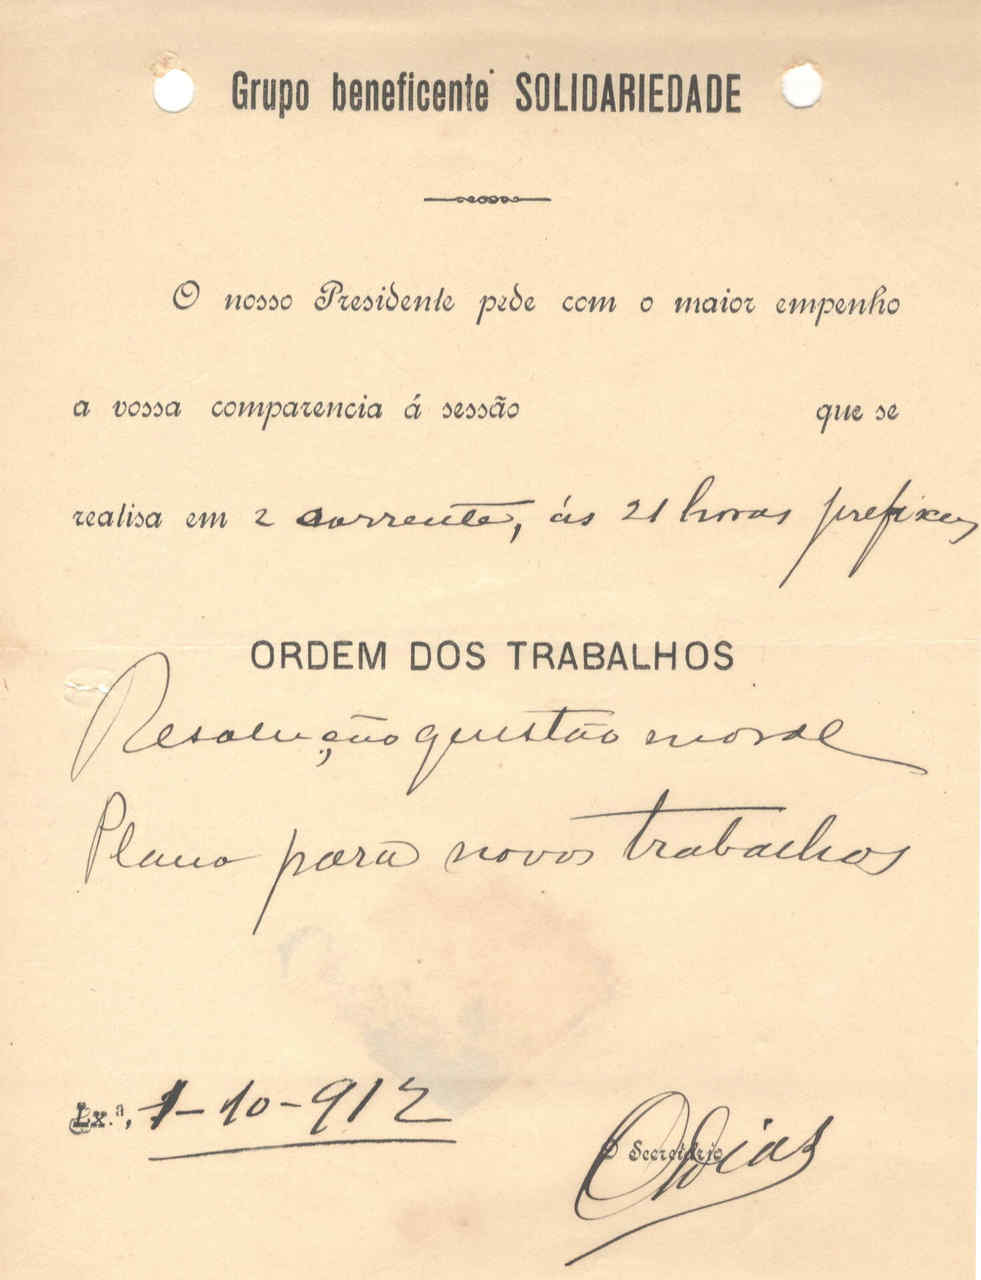 Grupo beneficente SOLIDARIEDADE
O nosso Presidente pede com o maior empenho
a vossa comparencia á sessão que se
realisa em 2 corrente, ás 21 horas prefixas
ORDEM DOS TRABALHOS
Resolução questão moral
Plano para novos trabalhos
Lx.ª, 1-10-912
O Secretário
Dias